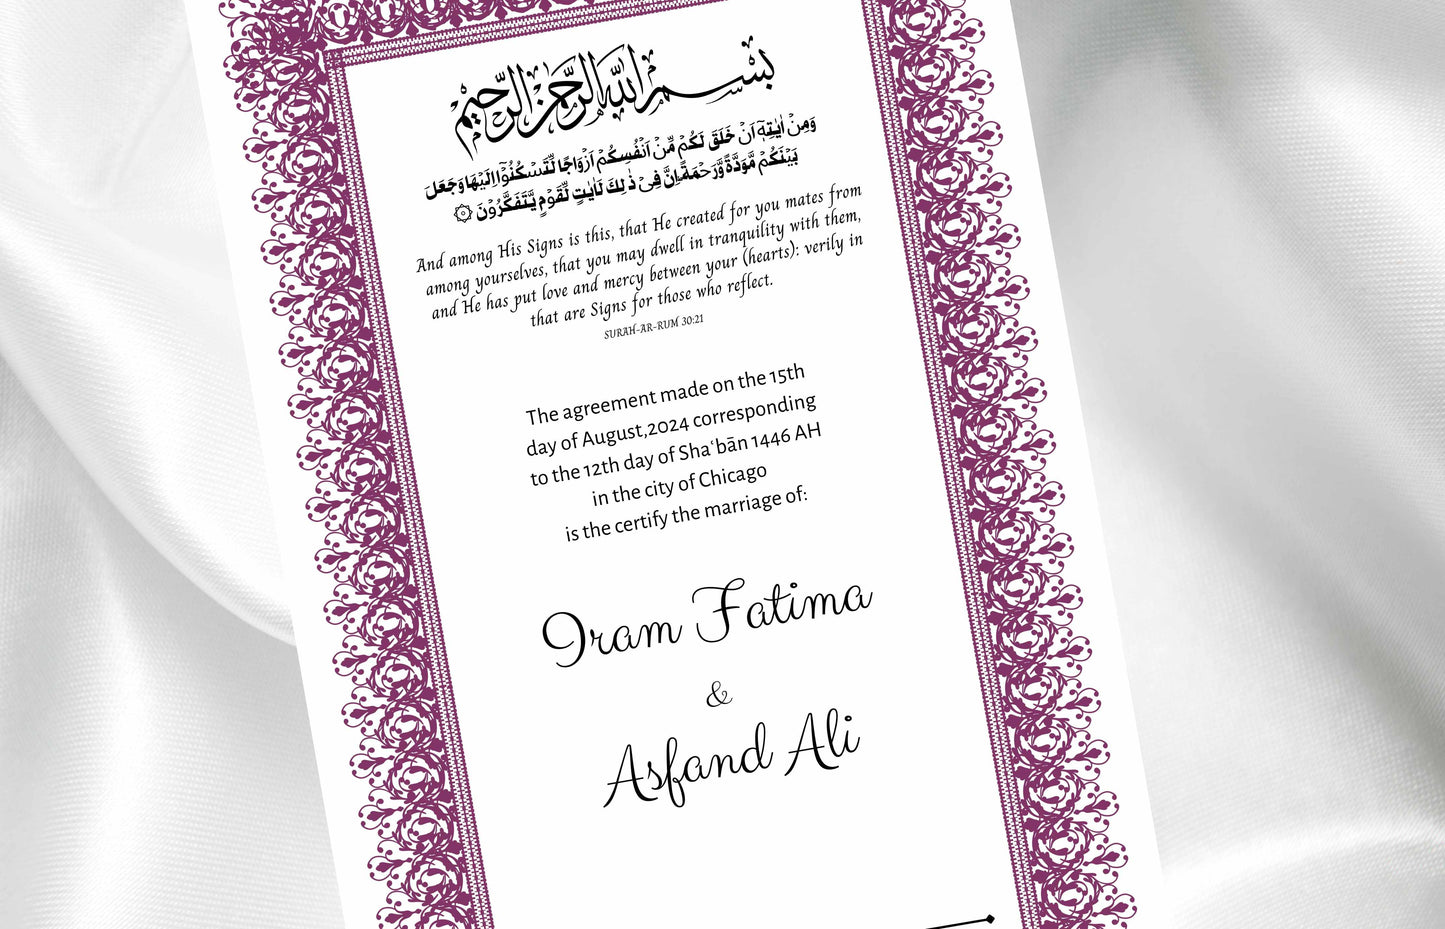 بِسْمِ اللهِ الرَّحْمٰنِ الرَّحِيْمِ
وَمِنْ اٰيٰتِهٖٓ اَنْ خَلَقَ لَكُمْ مِّنْ اَنْفُسِكُمْ اَزْوَاجًا لِّتَسْكُنُوْٓا اِلَيْهَا وَجَعَلَ
بَيْنَكُمْ مَّوَدَّةً وَّرَحْمَةً ۭ اِنَّ فِيْ ذٰلِكَ لَاٰيٰتٍ لِّقَوْمٍ يَّتَفَكَّرُوْنَ
And among His Signs is this, that He created for you mates from
among yourselves, that you may dwell in tranquility with them,
and He has put love and mercy between your (hearts): verily in
that are Signs for those who reflect.
SURAH-AR-RUM 30:21
The agreement made on the 15th
day of August,2024 corresponding
to the 12th day of Shaʿbān 1446 AH
in the city of Chicago
is the certify the marriage of:
Iram Fatima
&
Asfand Ali